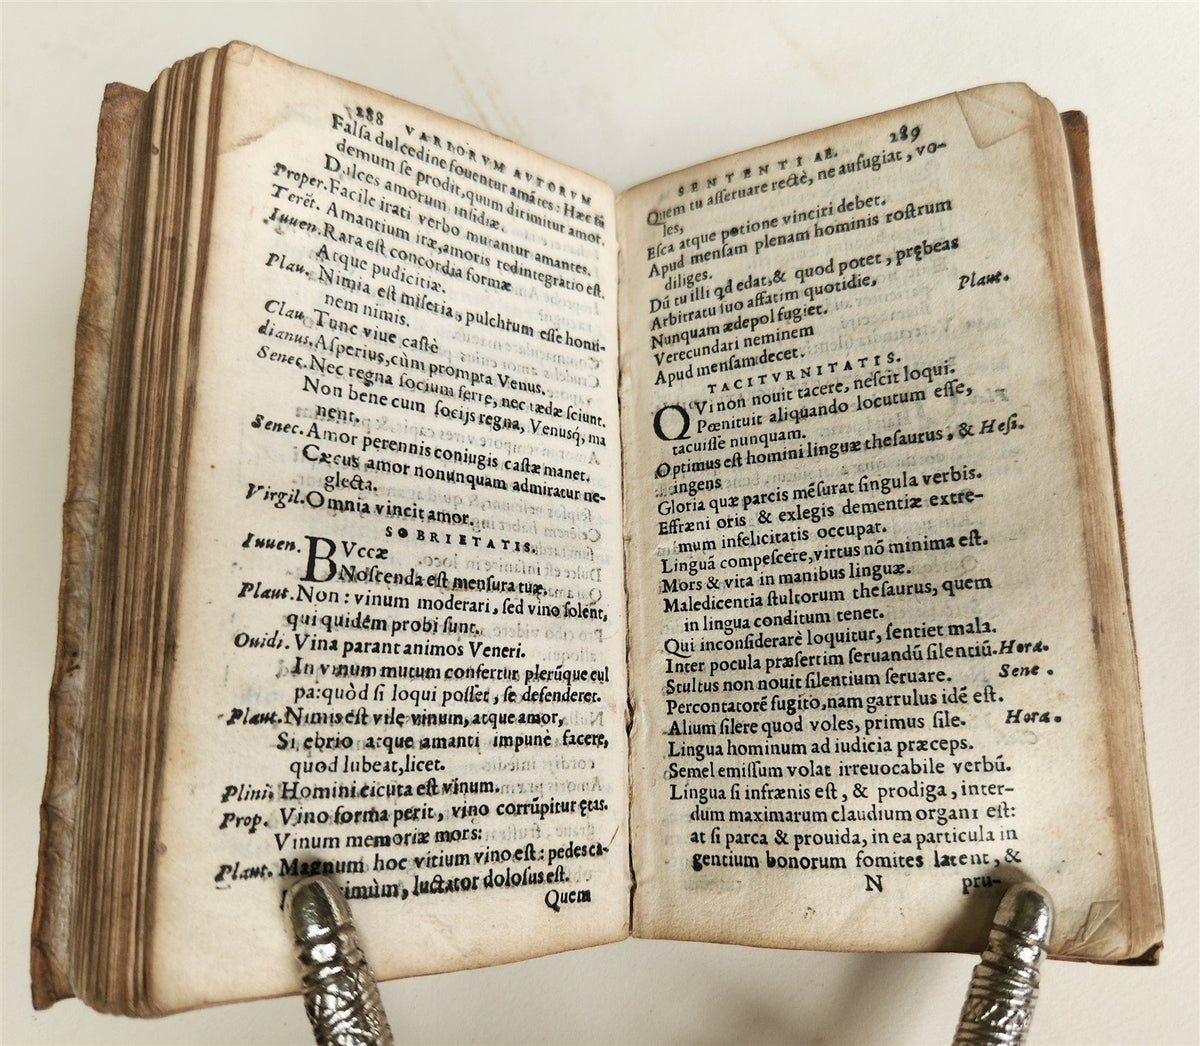 288 VARIORVM AVTORVM
Falſa dulcedine fouentur amātes: Hæc tū
demum ſe prodit, quum dirimitur amor.
Dulces amorum inſidiæ.
Proper. Facile irati verbo mutantur amantes.
Terēt. Amantium iræ, amoris redintegratio eſt.
Iuuen. Rara eſt concordia formæ
Atque pudicitiæ.
Plau. Nimia eſt miſeria, pulchrum eſſe homi-
nem nimis.
Clau Tunc viue caſtè
dianus. Aſperius, cùm prompta Venus.
Senec. Nec regna ſocium ferre, nec tædæ ſciunt.
Non bene cum ſocijs regna, Venusq́, ma
nent.
Senec. Amor perennis coniugis caſtæ manet.
Cæcus amor nonunquam admiratur ne-
glecta.
Virgil. Omnia vincit amor.
SOBRIETATIS.
Iuuen. BVccæ
Noſcenda eſt menſura tuæ,
Plaut. Non: vinum moderari, ſed vino ſolent,
qui quidem probi ſunt.
Ouidi. Vina parant animos Veneri.
In vinum mutum confertur plerūque cul
pa: quòd ſi loqui poſſet, ſe defenderet.
Plaut. Nimis eſt vile vinum, atque amor,
Si ebrio atque amanti impunè facere,
quod lubeat, licet.
Plini. Homini cicuta eſt vinum.
Prop. Vino forma perit, vino corrūpitur ętas.
Vinum memoriæ mors:
Plaut. Magnum hoc vitium vino eſt: pedes ca-
luctator doloſus eſt.
Quem
SENTENTIAE. 289
Quem tu aſſeruare rectè, ne aufugiat, vo-
les,
Eſca atque potione vinciri debet.
Apud menſam plenam hominis roſtrum
diliges.
Dū tu illi qd edat, & quod potet, prębeas
Arbitratu ſuo affatim quotidie,
Plaut.
Nunquam ædepol fugiet.
Verecundari neminem
Apud menſam decet.
TACITVRNITATIS.
QVi non nouit tacere, neſcit loqui.
Pœnituit aliquando locutum eſſe,
tacuiſſe nunquam.
Optimus eſt homini linguæ theſaurus, & Heſi.
ingens
Gloria quæ parcis mēſurat ſingula verbis.
Effræni oris & exlegis dementiæ extre-
mum infelicitatis occupat.
Linguā compeſcere, virtus nō minima eſt.
Mors & vita in manibus linguæ.
Maledicentia ſtultorum theſaurus, quem
in lingua conditum tenet.
Qui inconſiderarè loquitur, ſentiet mala.
Inter pocula præſertim ſeruandū ſilentiū. Hora.
Stultus non nouit ſilentium ſeruare. Sene.
Percontatorē fugito, nam garrulus idē eſt.
Alium ſilere quod voles, primus ſile. Hora.
Lingua hominum ad iudicia præceps.
Semel emiſſum volat irreuocabile verbū.
Lingua ſi infrænis eſt, & prodiga, inter-
dum maximarum claudium organı eſt:
at ſi parca & prouida, in ea particula in
gentium bonorum fomites latent, &
N pru-